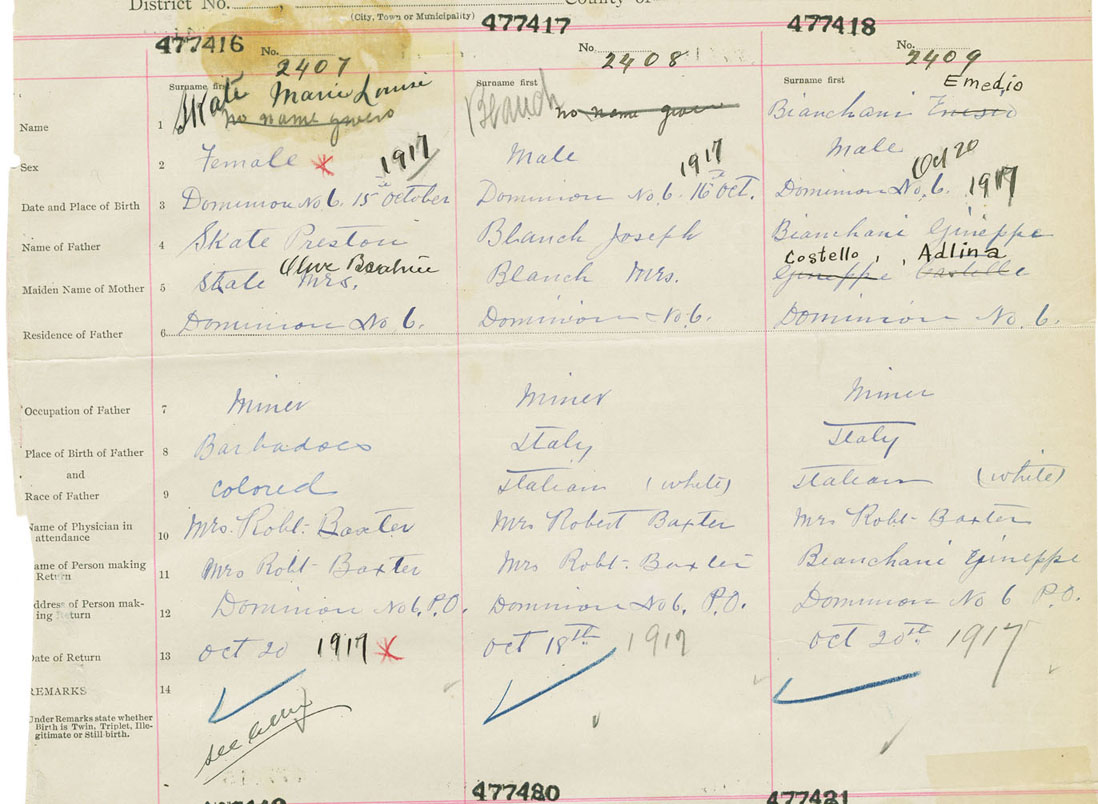 District No. , County of
(City, Town or Municipality)
477416 477417 477418
No. 2407 No. 2408 No. 2409
Surname first Surname first Surname first
Skate Marie Louise Emedio
Name 1 no name given Blanch no name given Bianchani Enesto
1917 1917 Oct 20
Sex 2 Female * Male Male
Date and Place of Birth 3 Dominion No 6. 15th October Dominion No. 6. 16th Oct. Dominion No. 6. 1917
Name of Father 4 Skate Preston Blanch Joseph Bianchani Gineppe
Olive Beatrice Costello, , Adlina
Maiden Name of Mother 5 Skate Mrs. Blanch Mrs. Gineppe Costello
Residence of Father 6 Dominion No 6. Dominion No. 6. Dominion No. 6.
Occupation of Father 7 Miner Miner Miner
Place of Birth of Father 8 Barbadoes Italy Italy
and
Race of Father 9 Colored Italian (white) Italian (white)
Name of Physician in
attendance 10 Mrs. Robt. Baxter Mrs Robert Baxter Mrs Robt. Baxter
ame of Person making
Return 11 Mrs Robt. Baxter Mrs Robt. Baxter Bianchani Gineppe
ddress of Person mak-
ing Return 12 Dominion No 6, P.O. Dominion No 6. P.O. Dominion No 6 P.O.
Date of Return 13 Oct 20 1917 * Oct 18th 1917 Oct 20th 1917
REMARKS 14
Under Remarks state whether
Birth is Twin, Triplet, Ille-
gitimate or Still-birth.
see
477420 477421